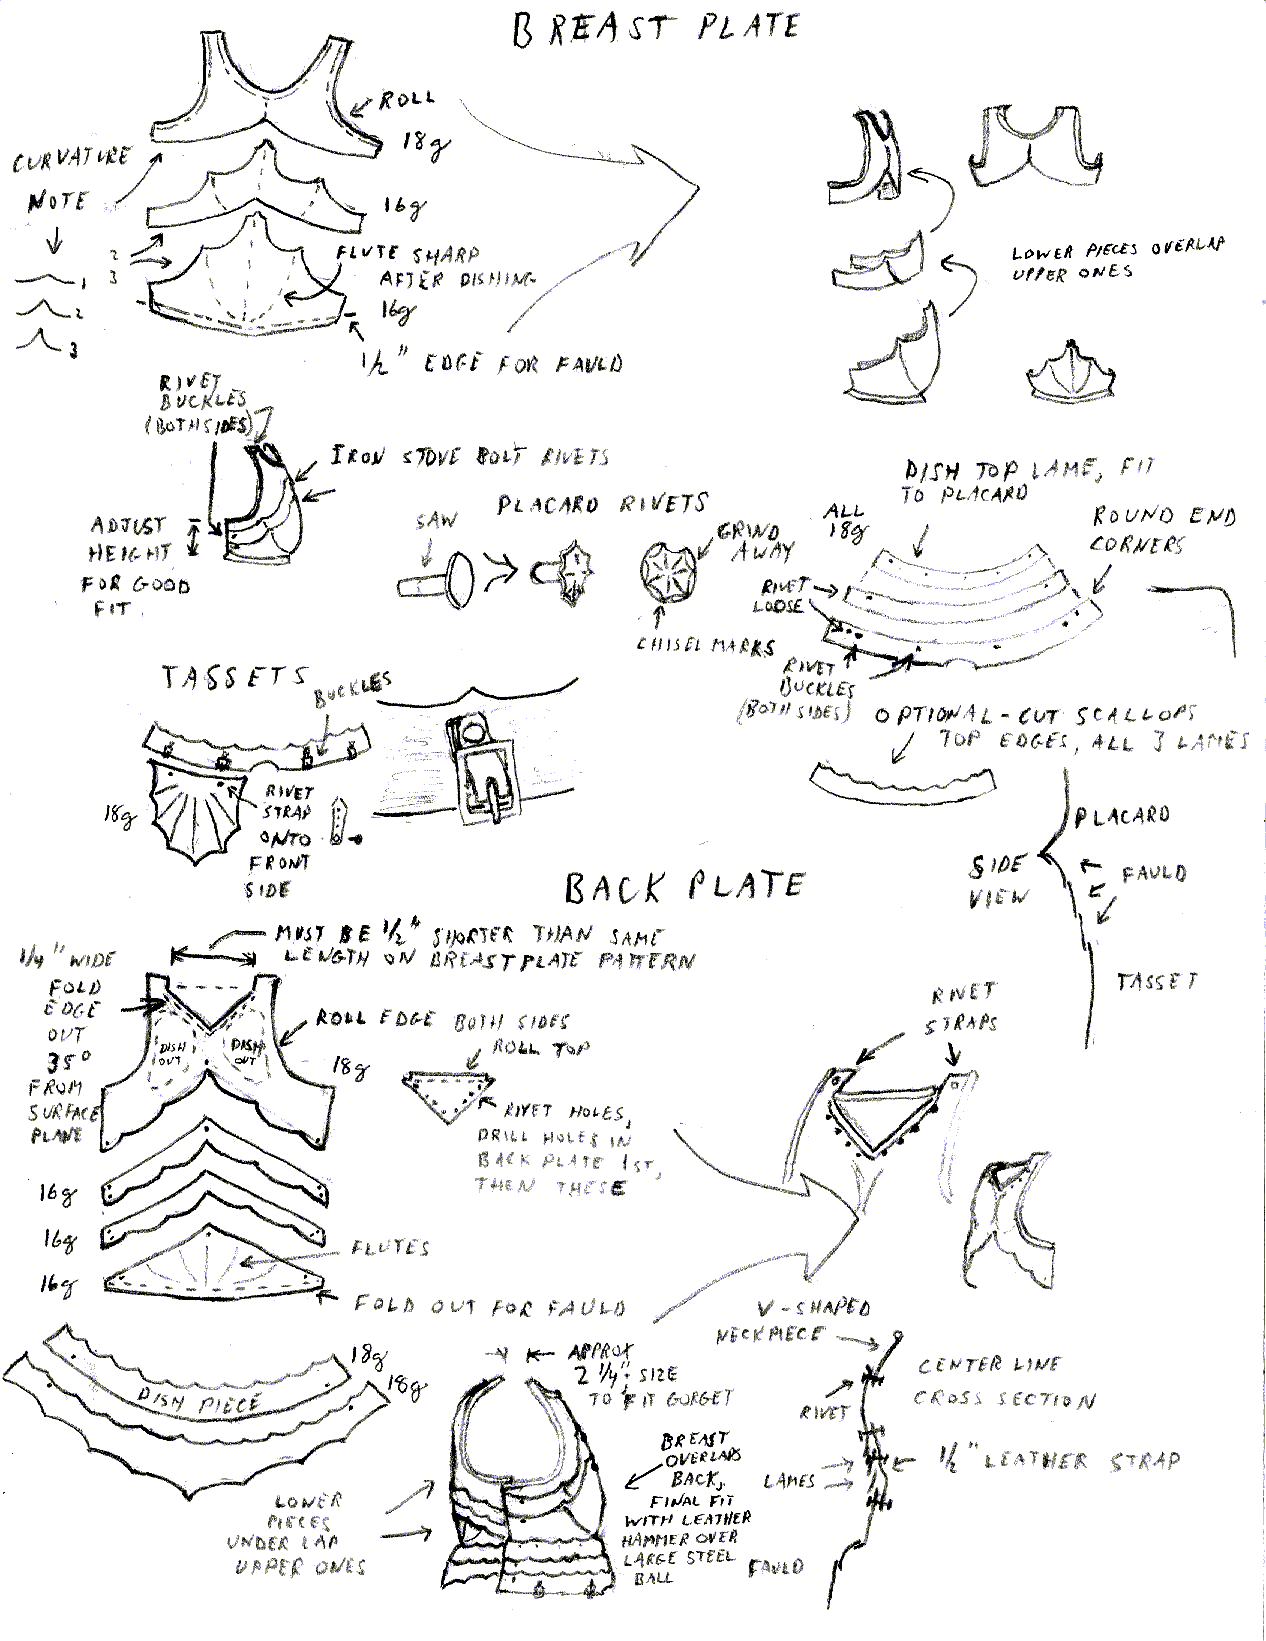 BREAST PLATE
ROLL
18g
CURVATURE
NOTE
1
2
3
2
3
16g
FLUTE SHARP
AFTER DISHING
16g
1/2" EDGE FOR FAULD
LOWER PIECES OVERLAP
UPPER ONES
RIVET
BUCKLES
(BOTH SIDES)
IRON STOVE BOLT RIVETS
ADJUST
HEIGHT
FOR GOOD
FIT.
PLACARD RIVETS
SAW
GRIND
AWAY
CHISEL MARKS
DISH TOP LAME, FIT
TO PLACARD
ALL
18g
ROUND END
CORNERS
RIVET
LOOSE
RIVET
BUCKLES
(BOTH SIDES)
OPTIONAL-CUT SCALLOPS
TOP EDGES, ALL 3 LAMES
TASSETS
BUCKLES
18g
RIVET
STRAP
ONTO
FRONT
SIDE
PLACARD
SIDE
VIEW
FAULD
TASSET
BACK PLATE
MUST BE 1/2" SHORTER THAN SAME
LENGTH ON BREASTPLATE PATTERN
1/4" WIDE
FOLD
EDGE
OUT
35°
FROM
SURFACE
PLANE
DISH
OUT
DISH
OUT
ROLL EDGE BOTH SIDES
18g
ROLL TOP
RIVET HOLES,
DRILL HOLES IN
BACK PLATE 1ST,
THEN THESE
RIVET
STRAPS
16g
16g
16g
FLUTES
FOLD OUT FOR FAULD
18g
18g
DISH PIECE
APPROX
2 1/4" SIZE
TO FIT GORGET
LOWER
PIECES
UNDER LAP
UPPER ONES
BREAST
OVERLAPS
BACK,
FINAL FIT
WITH LEATHER
HAMMER OVER
LARGE STEEL
BALL
V-SHAPED
NECKPIECE
CENTER LINE
CROSS SECTION
RIVET
1/2" LEATHER STRAP
LAMES
FAULD